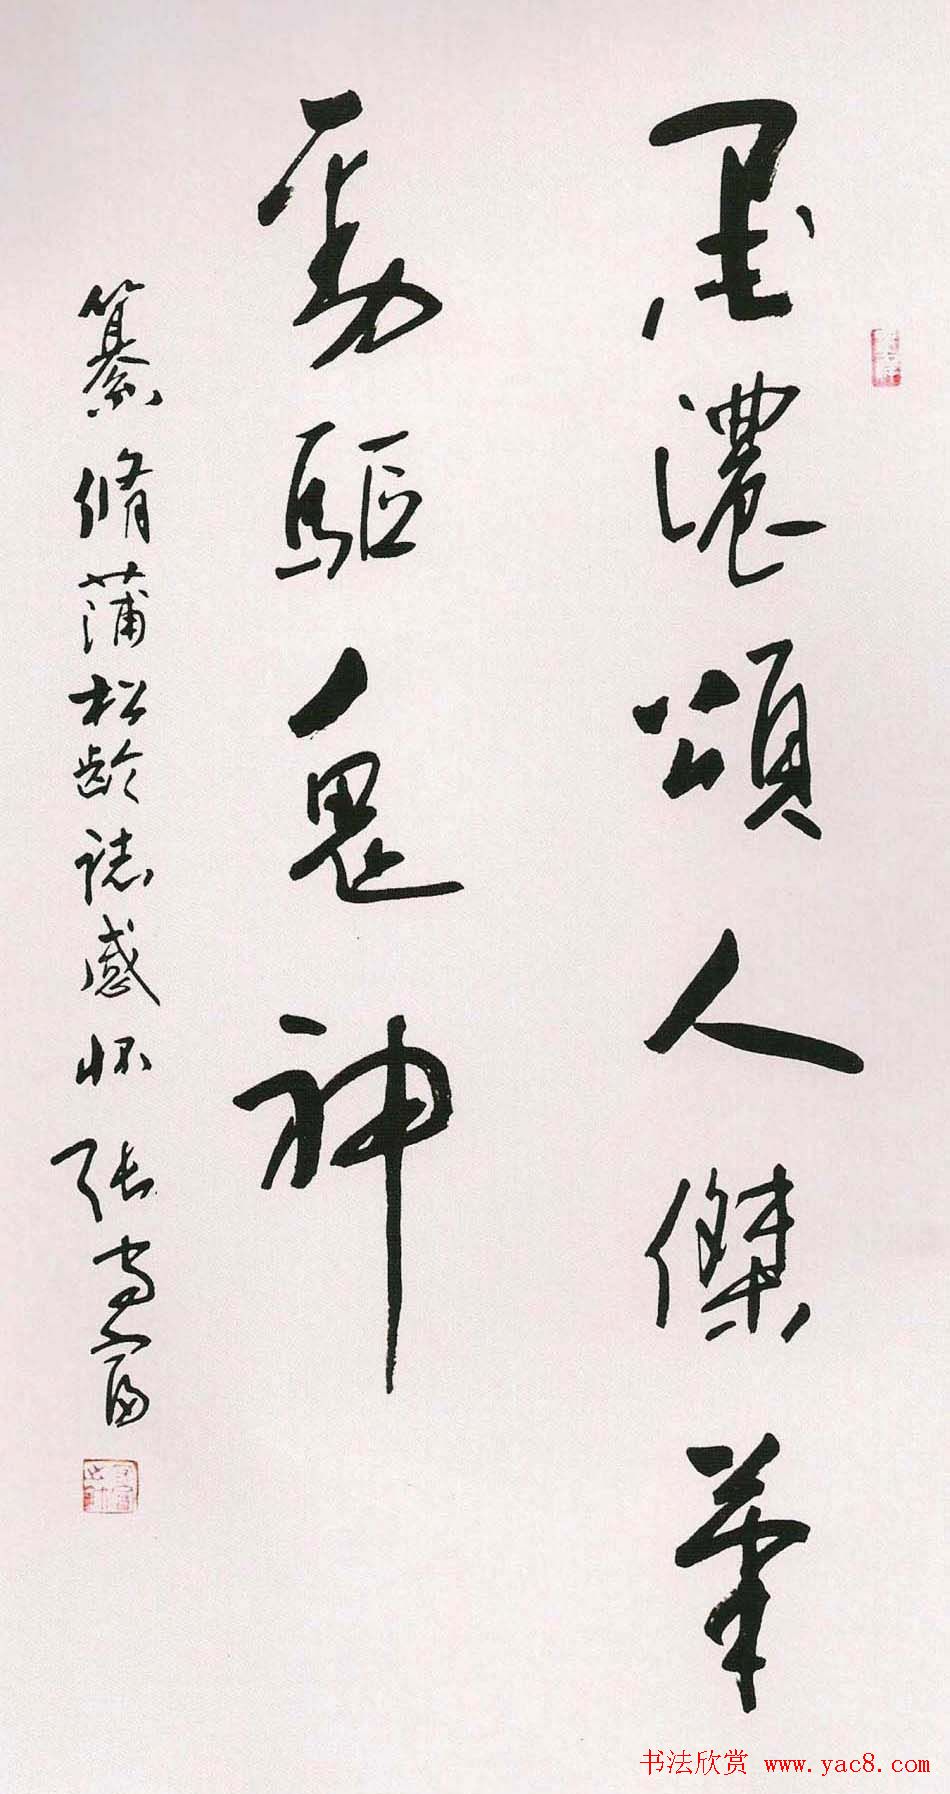 墨濃頌人傑筆
勁驅鬼神
纂脩蒲松龄誌感怀 张
书法欣赏 www.yac8.com